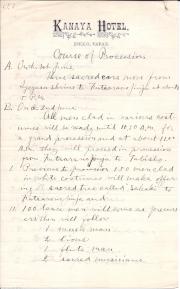 KANAYA HOTEL,
NIKKO, JAPAN.
Course of Procession
A. On the 1st June
Three sacred cars move from
shrine to Futaarasan jinja at
5 P.M.
B. On the 2nd June
All men clad in various cost
umes will be ready until 10,30 A.M. for
a grand procession and at about 11.00
A.M. they will proceed in procession
from Futaarasan jinja to
1. Previous to procession 150 men clad
in white costumes will make offer
ing of sacred tree called Sakaki to
Futaarasan jinja and
11. 100 lance men will come as
then will follow
1 man
2 lions
1 flute man
2 sacred musicians